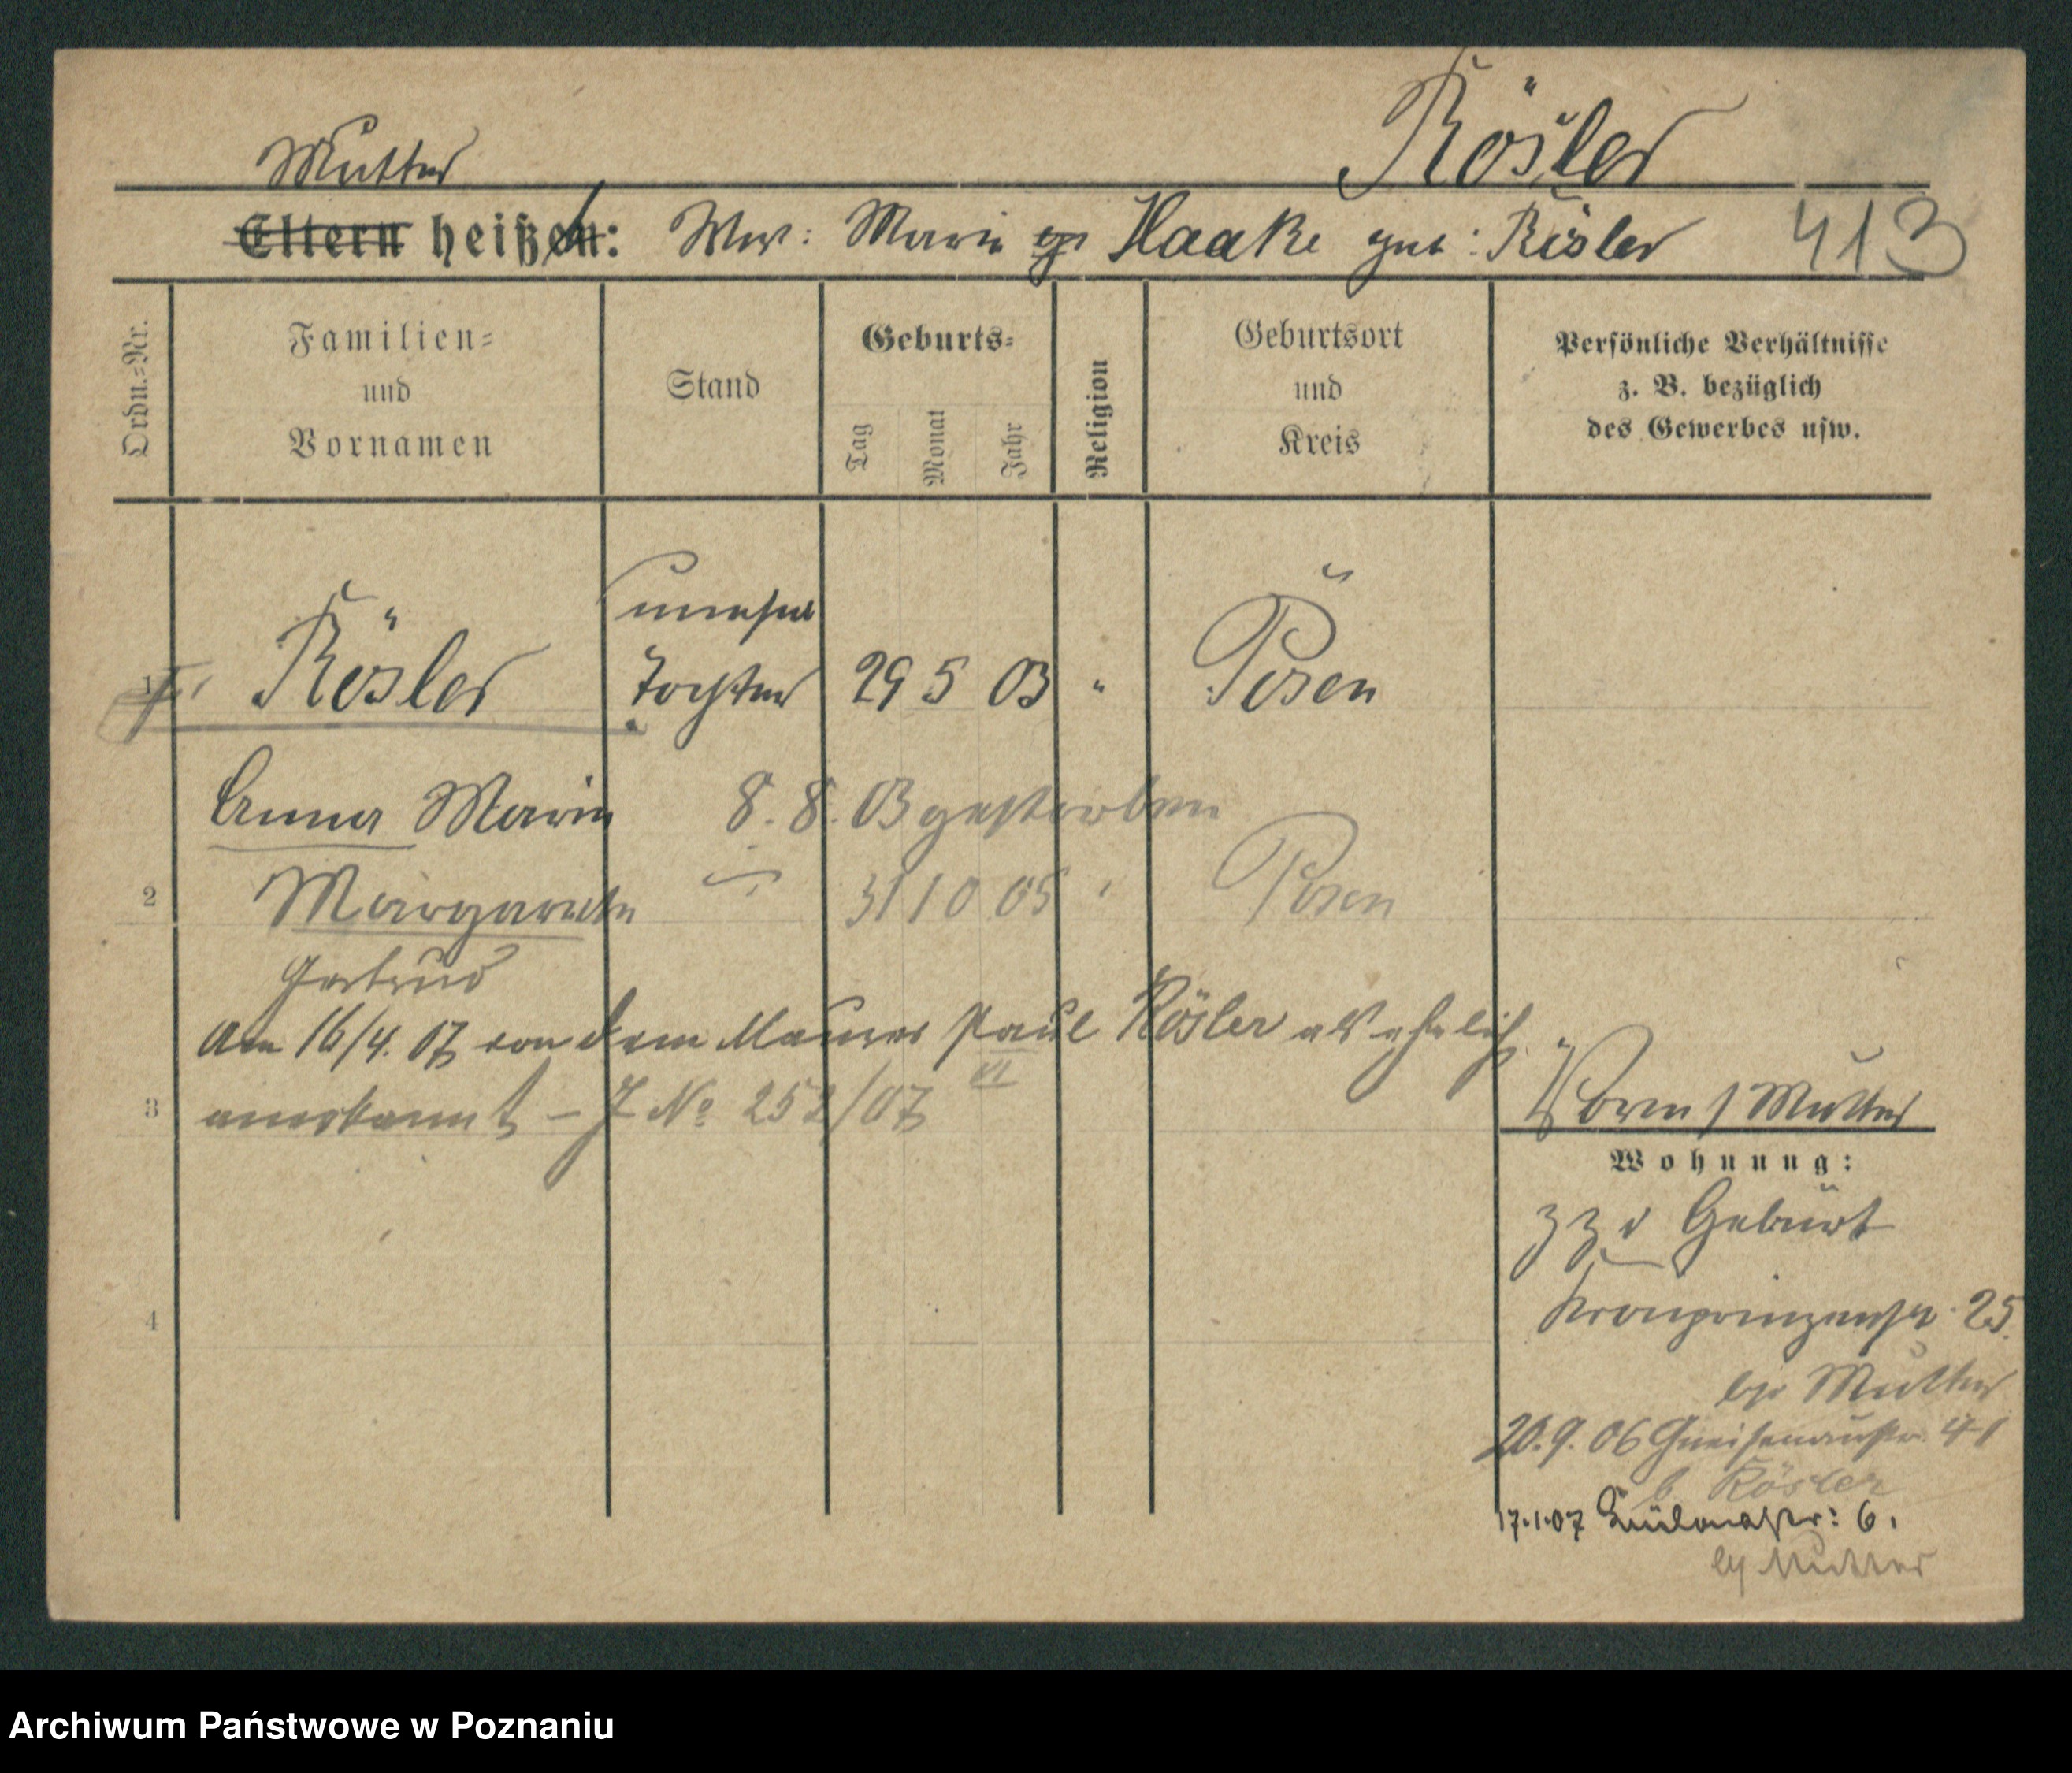 Mutter Rösler
Eltern heißen: Ww: Marie Haake geb: Rösler 413
Ordn.=Nr.
Familien=
und
Vornamen
Stand
Geburts=
Tag
Monat
Jahr
Religion
Geburtsort
und
Kreis
Persönliche Verhältnisse
z. B. bezüglich
des Gewerbes usw.
unehel
1 Rösler Tochter 29 5 03 " Posen
Anna Marie 8. 8. 03 gestorben
2 Margarethe 31 10 05 " Posen
Gertrud
Am 16/4. 07 von dem Maurer Paul Rösler als ehelich
VI
3 anerkannt – J No 252/07
Mutter
Wohnung:
z Z d Geburt
4 Kronprinzenstr. 25
bei Mutter
20.9.06 Gneisenaustr. 41
b Rösler
17.1.07 6.
bei Mutter
Archiwum Państwowe w Poznaniu